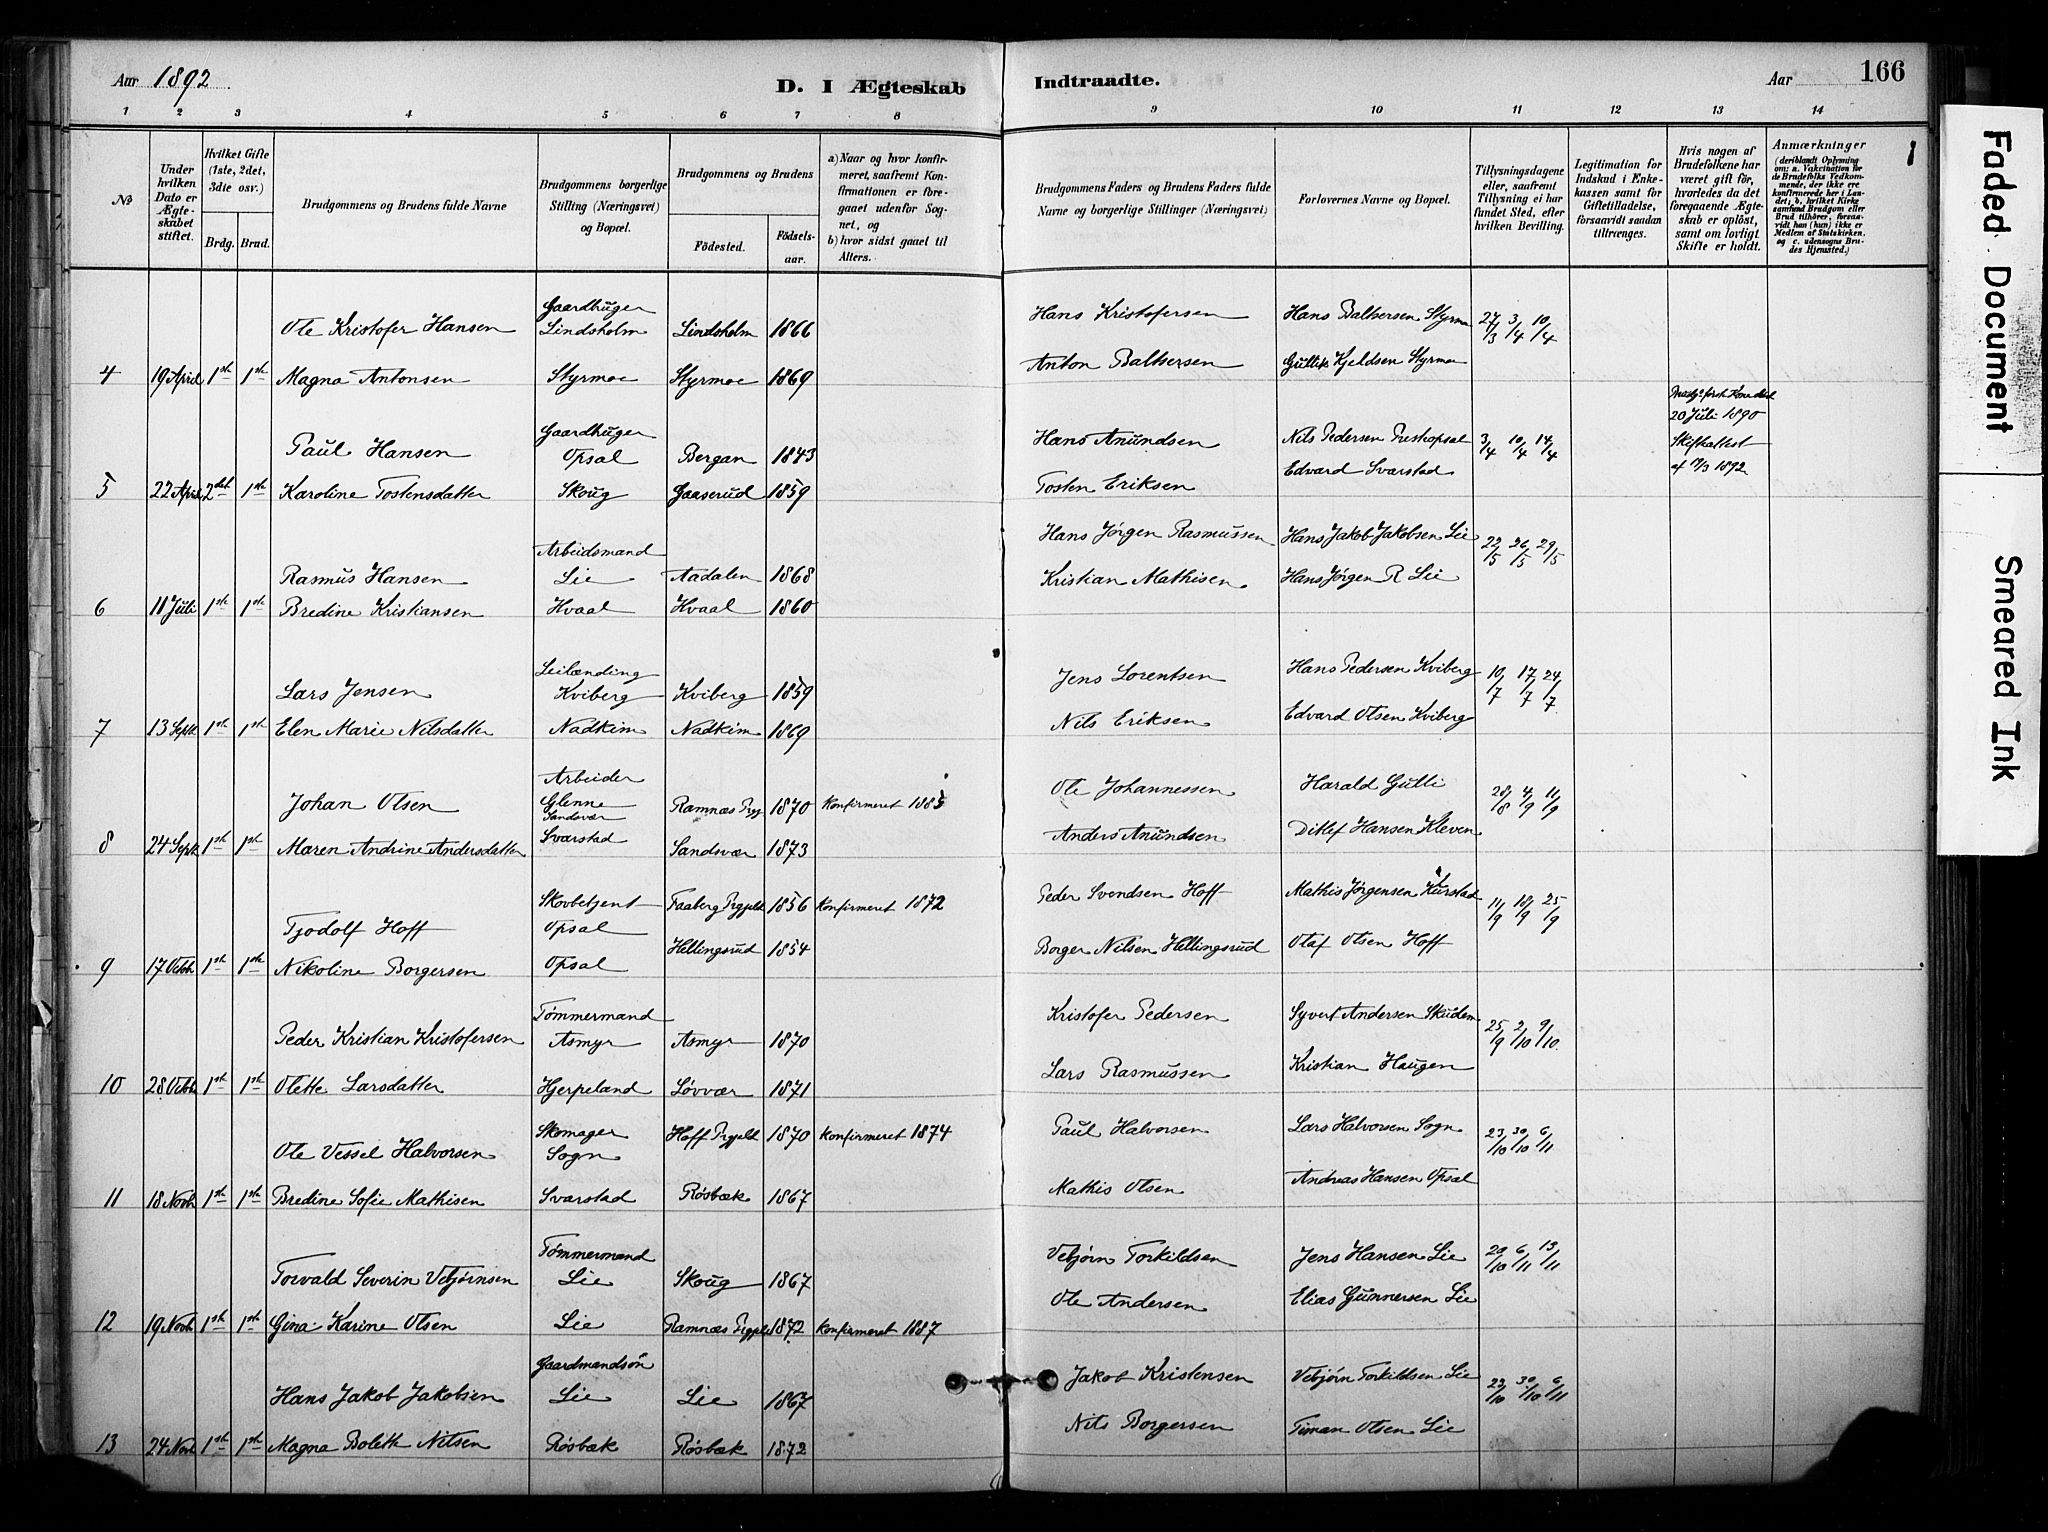 Aar 1892
D. I Ægteskab Indtraadte.
Aar 166
1 2 3 4 5 6 7 8 9 10 11 12 13 14
№
Under hvilken Dato er Ægteskabet stiftet.
Hvilket Gifte (1ste, 2det, 3die osv.)
Brdg. Brud.
Brudgommens og Brudens fulde Navne
Brudgommens borgerlige Stilling (Næringsvei) og Bopæl.
Brudgommens og Brudens
Födested.
Födselsaar.
a) Naar og hvor konfirmeret, saafremt Konfirmationen er foregaaet udenfor Sognet, og
b) hvor sidst gaaet til Alters.
Brudgommens Faders og Brudens Faders fulde Navne og borgerlige Stillinger (Næringsvei)
Forlovernes Navne og Bopæl.
Tillysningsdagene eller, saafremt Tillysning ei har fundet Sted, efter hvilken Bevilling.
Legitimation for Indskud i Enkekassen samt for Giftetilladelse, forsaavidt saadan tiltrænges.
Hvis nogen af Brudefolkene har været gift för, hvorledes da det foregaaende Ægteskab er oplöst, samt om lovligt Skifte er holdt.
Anmærkninger (deriblandt Oplysning om: a. Vakcination for de Brudefolks Vedkommende, der ikke ere konfirmerede her i Landet; b. hvilket Kirkesamfund Brudgom eller Brud tilhörer, forsaavidt han (hun) ikke er Medlem af Statskirken, og c. udensogns Brudes Hjemsted.)
Gaardbruger
Ole Kristofer Hansen Lindsholm Lindsholm 1866 Hans Kristofersen Hans Baltsersen Styrmoe 27/3 3/4 10/4
4 19 April 1ste 1ste Magna Antonsen Styrmoe Styrmoe 1869 Anton Baltsersen Gullik Kjeldsen Styrmoe
Gaardbruger
20 Juli 1890
Paul Hansen Opsal Bergan 1843 Hans Anundsen Nils Pedersen Prestopsal 3/4 10/4 14/4 Skifteattest
5 22 April 2det 1ste Karoline Tostensdatter Skoug Gaaserud 1859 Tosten Eriksen Edvard Svarstad af 19/3 1892
Arbeidsmand
Rasmus Hansen Lie Aadalen 1868 Hans Jörgen Rasmussen Hans Jakob Jakobsen Lie 22/5 26/5 29/5
6 11 Juli 1ste 1ste Bredine Kristiansen Hvaal Hvaal 1860 Kristian Mathisen Hans Jörgen R Lie
Leilænding
Lars Jensen Kviberg Kviberg 1859 Jens Lorentsen Hans Pedersen Kviberg 10/7 17/7 24/7
7 13 Septr 1ste 1ste Elen Marie Nilsdatter Nadkim Nadkim 1869 Nils Eriksen Edvard Olsen Kviberg
Arbeider
Johan Olsen Glenne Sandsvær Ramnæs Prgj 1870 Konfirmeret 1885 Ole Johannessen Harald Gulli 28/8 4/9 11/9
8 24 Septr 1ste 1ste Maren Andrine Andersdatter Svarstad Sandsvær 1873 Anders Anundsen Ditlef Hansen Kleven
Skovbetjent
Tjodolf Hoff Opsal Faaberg Prgjeld 1856 Konfirmeret 1872 Peder Svendsen Hoff Mathis Jørgensen 11/9 18/9 25/9
9 17 Octob 1ste 1ste Nikoline Borgersen Opsal Hellingsrud 1854 Borger Nilsen Hellingsrud Olaf Olsen Hoff
Tömmermand
Peder Kristian Kristofersen Asmyr Asmyr 1870 Kristofer Pedersen Syvert Andersen Skudem 25/9 2/10 9/10
10 28 Octob 1ste 1ste Olette Larsdatter Hjerpeland Løvvær 1871 Lars Rasmussen Kristian Haugen
Skomager
Ole Vessel Halvorsen Sogn Hoff Prgjeld 1870 Konfirmeret 1874 Paul Halvorsen Lars Halvorsen Sogn 23/10 30/10 6/11
11 18 Novb 1ste 1ste Bredine Sofie Mathisen Svarstad Røsbæk 1867 Mathis Olsen Andreas Hansen Opsal
Tømmermand
Torvald Severin Vebjørnsen Lie Skoug 1867 Vebjørn Torkildsen Jens Hansen Lie 6/11 13/11
12 19 Novb 1ste 1ste Gina Karine Olsen Lie Ramnæs Prgjeld 1872 Konfirmeret 1887 Ole Andersen Elias Gunnersen Lie
Gaardmandsön
Hans Jakob Jakobsen Lie Lie 1867 Jakob Kristensen Vebjørn Torkildsen Lie 23/10 30/10 6/11
13 24 Novb 1ste 1ste Magna Bolette Nilsen Røsbæk Røsbæk 1872 Nils Borgersen Timan Olsen Lie
Faded Document
Smeared Ink